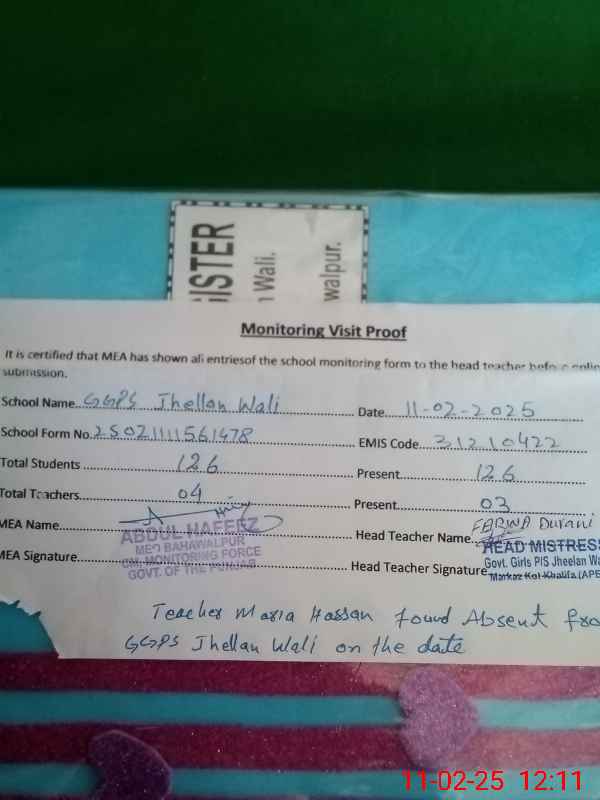 ISTER
n Wali.
walpur.
Monitoring Visit Proof
It is certified that MEA has shown all entriesof the school monitoring form to the head teacher before onlin
submission.
School Name GGPS Jhellan Wali Date 11-02-2025
School Form No. 25021111561478 EMIS Code 31210422
Total Students 126 Present 126
Total Teachers 04 Present 03
MEA Name
ABDUL HAFEEZ
MEO BAHAWALPUR
CM. MONITORING FORCE
GOVT. OF THE PUNJAB
Head Teacher Name Durani
MEA Signature
Head Teacher Signature
HEAD MISTRESS
Govt. Girls P/S Jheelan Wa
Markaz Kot Khalifa (APE
Teacher Maria Hassan found Absent fro
GGPS Jhellan Wali on the date
11-02-25 12:11